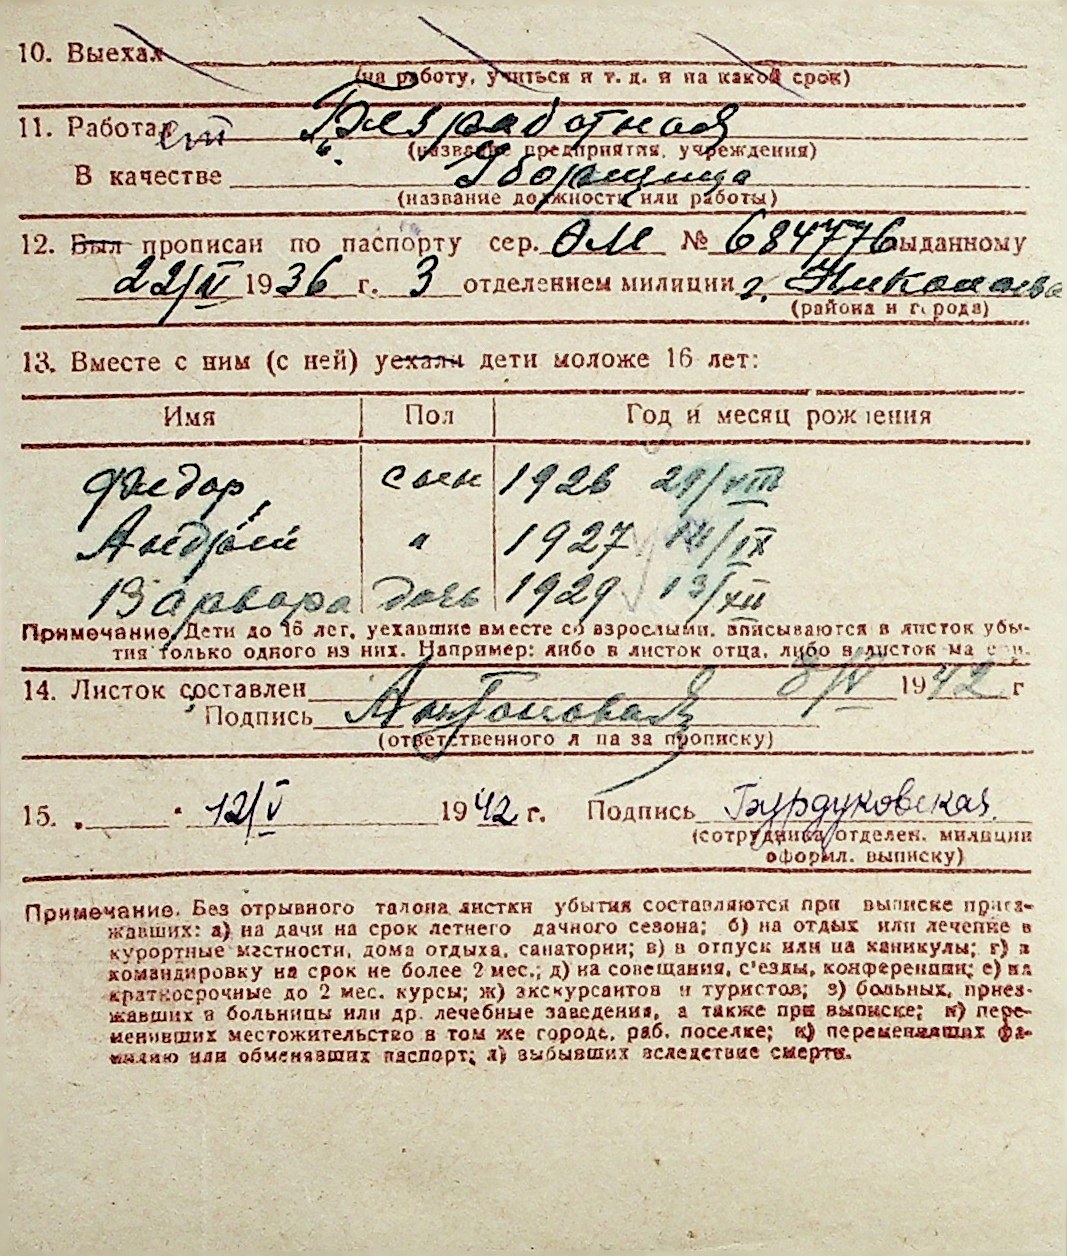 10. Выехал
(на работу, учиться и т. д. и на какой срок)
11. Работает Безработная
(название предприятия, учреждения)
В качестве Уборщица
(название должности или работы)
12. Был прописан по паспорту сер. ОМ № 684776 выданному
22/IV 1936 г. 3 отделением милиции г. Николаева
(района и города)
13. Вместе с ним (с ней) уехали дети моложе 16 лет:
Имя Пол Год и месяц рождения
Федор сын 1926 29/VIII
Андрей " 1927 14/IX
Варвара дочь 1929 13/XII
Примечание. Дети до 16 лет, уехавшие вместе со взрослыми, вписываются в листок убы-
тия только одного из них. Например: либо в листок отца, либо в листок матери.
14. Листок составлен 8/IV 1942 г
Подпись Антоновая
(ответственного лица за прописку)
15. 12/V 1942 г. Подпись Бурдуковская
(сотрудника отделен. милиции
оформл. выписку)
Примечание. Без отрывного талона листки убытия составляются при выписке приез-
жавших: а) на дачи на срок летнего дачного сезона; б) на отдых или лечение в
курортные местности, дома отдыха, санатории; в) в отпуск или на каникулы; г) в
командировку на срок не более 2 мес.; д) на совещания, с'езды, конференции; е) на
краткосрочные до 2 мес. курсы; ж) экскурсантов и туристов; з) больных, приез-
жавших в больницы или др. лечебные заведения, а также при выписке; и) пере-
менивших местожительство в том же городе, раб. поселке; к) переменивших фа-
милию или обменявших паспорт; л) выбывших вследствие смерти.